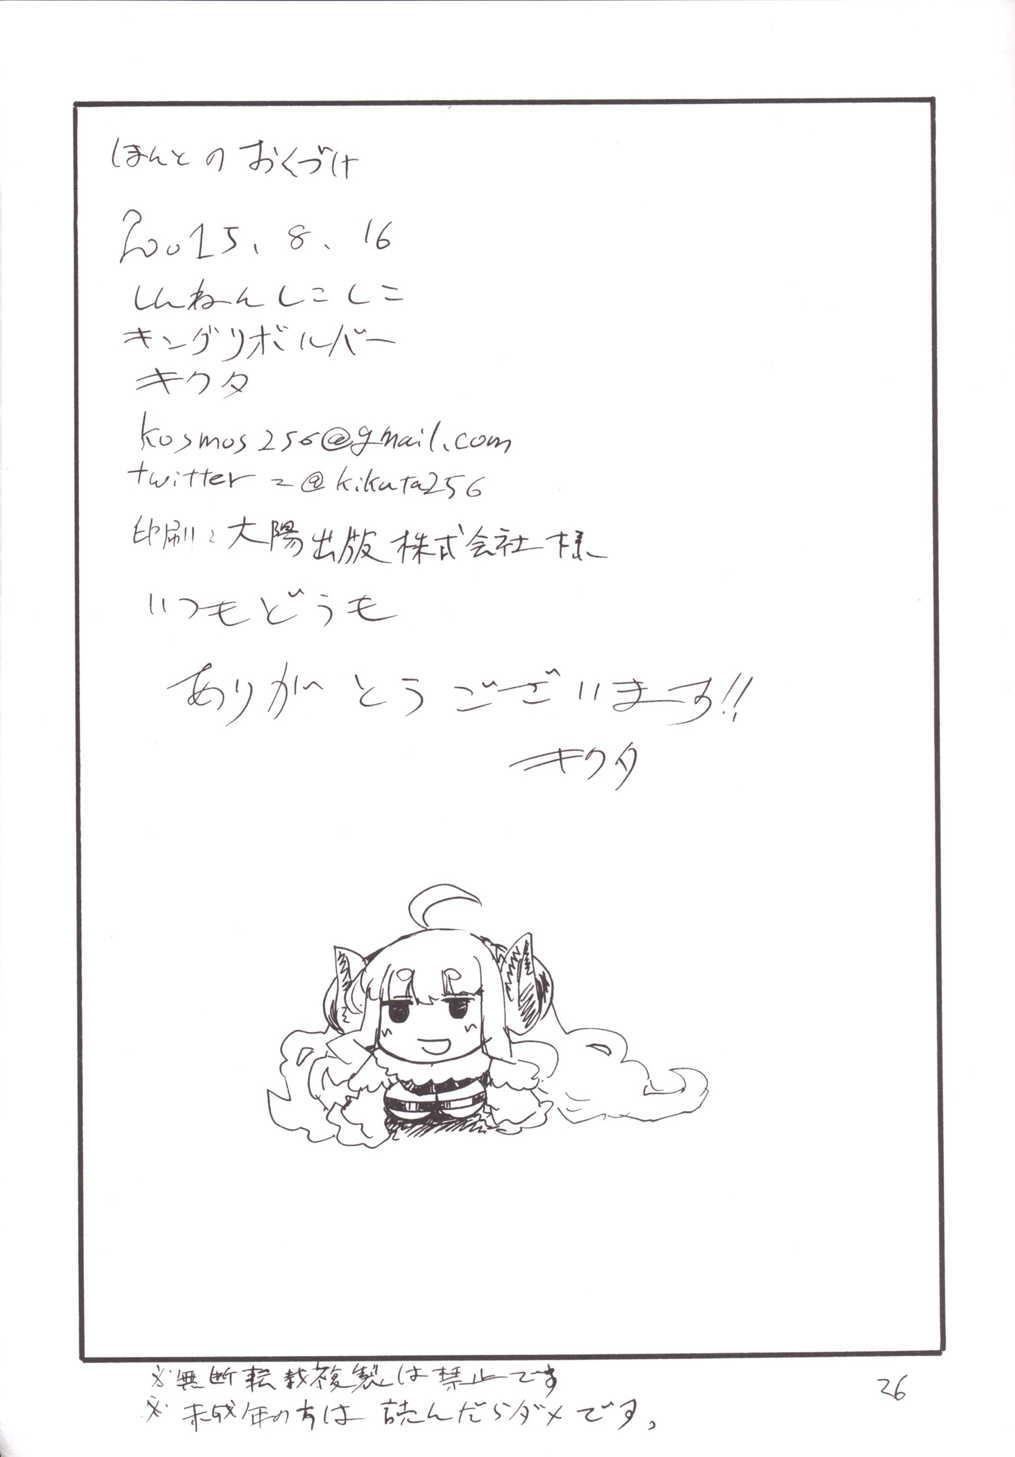 ほんとのおくづけ
2015、8、16
しんねんしこしこ
キングリボルバー
キクタ
kosmos256@gmail.com
twitter = @kikuta256
印刷: 大陽出版株式会社様
いつもどうも
ありがとうございます!!
キクタ
※無断転載複製は禁止です
※未成年の方は読んだらダメです。
26